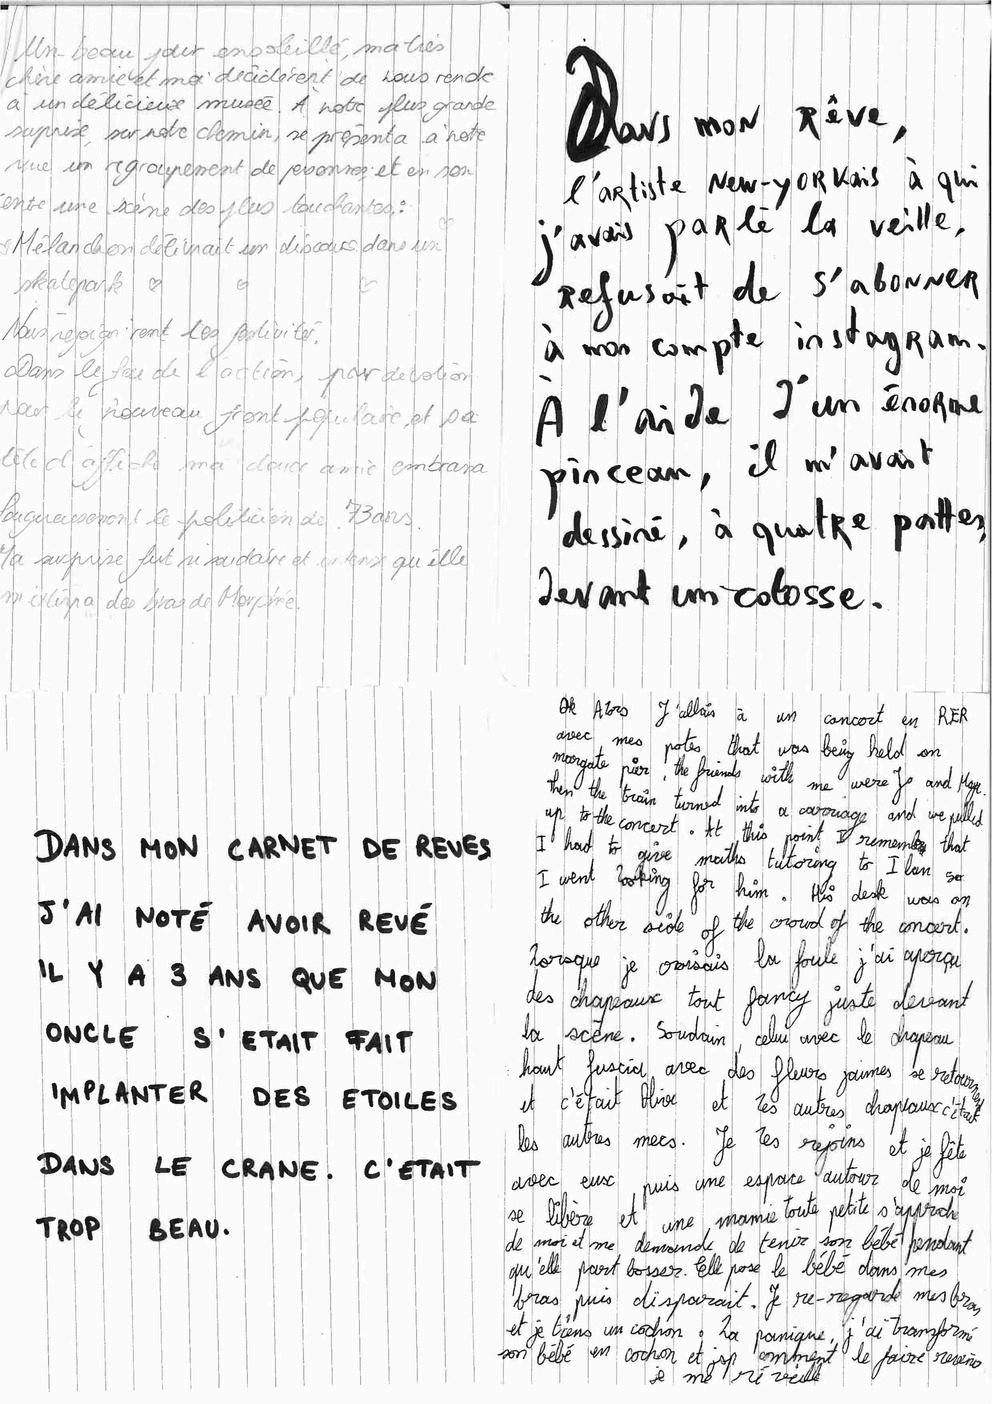 Un beau jour ensoleillé, ma très
chère amie et moi décidèrent de nous rendre
à un délicieux musée. À notre plus grande
surprise, sur notre chemin, se présenta à notre
vue un regroupement de personnes et en son
centre une scène des plus touchantes,:
Mélanchon délivrait un discours dans un
skatepark
Nous rejoignirent les festivités.
Dans le feu de l'action, par dévotion
pour le nouveau front populaire, et sa
tête d'affiche ma douce amie embrassa
fougueusement le politicien de 73 ans.
Ma surprise fut si soudaine et intense qu'elle
m'extirpa des bras de Morphée.
Dans mon rêve,
l'artiste New-yorkais à qui
j'avais parlé la veille,
refusait de s'abonner
à mon compte instagram.
À l'aide d'un énorme
pinceau, il m'avait
dessiné, à quatre pattes,
devant un colosse.
DANS MON CARNET DE REVES
J'AI NOTÉ AVOIR REVÉ
IL Y A 3 ANS QUE MON
ONCLE S'ETAIT FAIT
IMPLANTER DES ETOILES
DANS LE CRANE. C'ETAIT
TROP BEAU.
Ok Alors J'allais à un concert en RER
avec mes potes that was being held on
margate pier, the friends with me were Jo and
then the train turned into a carriage and we pulled
up to the concert. At this point I remember that
I had to give maths tutoring to Ilan so
I went looking for him. His desk was on
the other side of the crowd of the concert.
Lorsque je croisais la foule j'ai aperçu
des chapeaux tout fancy juste devant
la scène. Soudain, celui avec le chapeau
haut fuscia avec des fleurs jaunes se retourne
et c'était Olive et les autres chapeaux c'était
les autres mecs. Je les rejoins et je fête
avec eux puis une espace autour de moi
se libère et une mamie toute petite s'approche
de moi et me demande de tenir son bébé pendant
qu'elle part bosser. Elle pose le bébé dans mes
bras puis disparait. Je re-regarde mes bras
et je tiens un cochon. La panique, j'ai transformé
son bébé en cochon et jsp comment le faire revenir
je me réveille